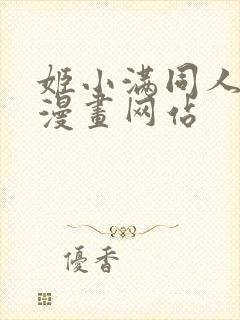 姬小满同人
漫畫网佔
優香